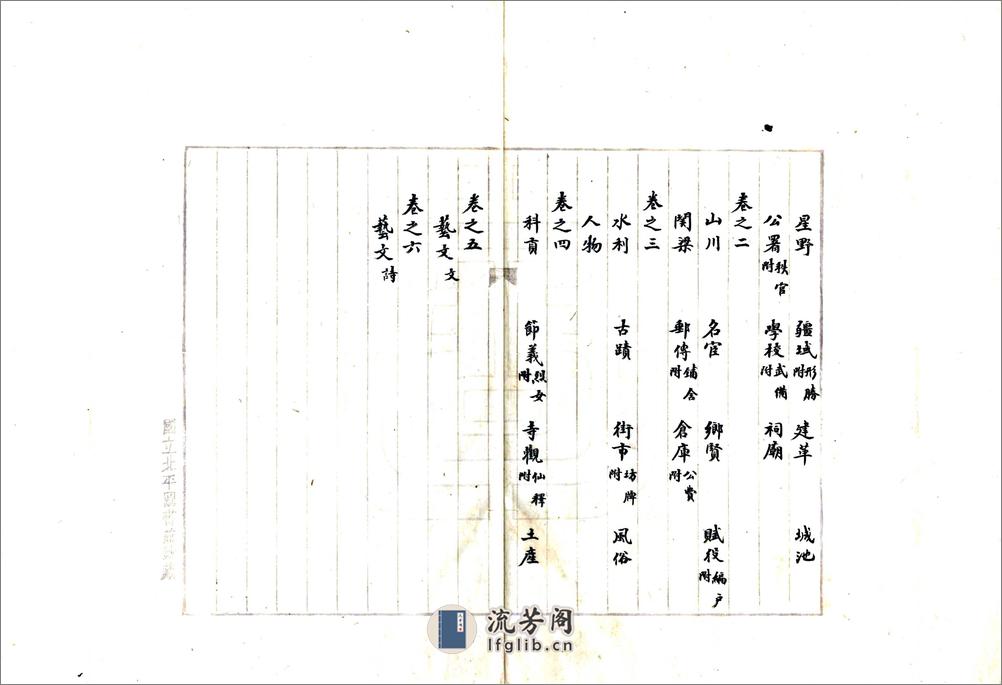 星野 疆域形勝附 建革 城池
公署秩官附 學校武備附 祠廟
卷之二
山川 名宦 鄉賢 賦役編户附
関梁 郵傳鋪舍附 倉庫公費附
卷之三
水利 古蹟 街市坊牌附 風俗
人物
卷之四
科貢 節義烈女附 寺觀仙釋附 土產
卷之五
藝文文
卷之六
藝文詩
國立北平圖書館
流芳阁
lfglib.cn